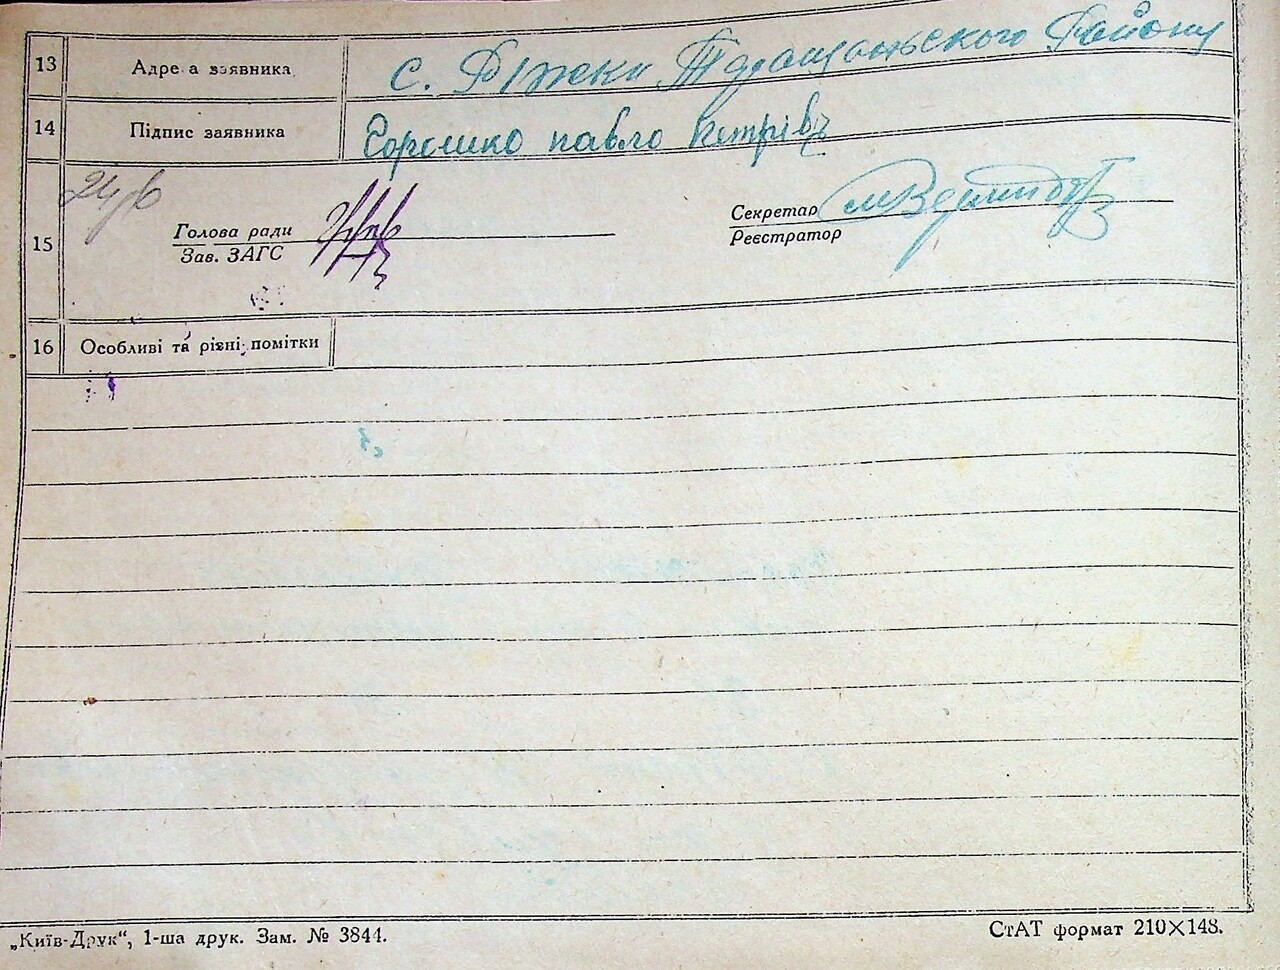 13 Адреса заявника с. Ріжки Таращанського Району
14 Підпис заявника Горошко павло Петрів
15 Голова ради Секретар
Зав. ЗАГС Реєстратор
16 Особливі та різні помітки
„Київ-Друк“, 1-ша друк. Зам. № 3844. СтАТ формат 210×148.